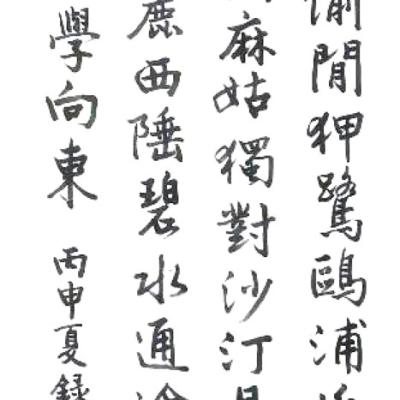 偷閒狎鷺鷗浦
麻姑獨對沙汀
鹿西陲碧水通
學向東 丙申夏錄